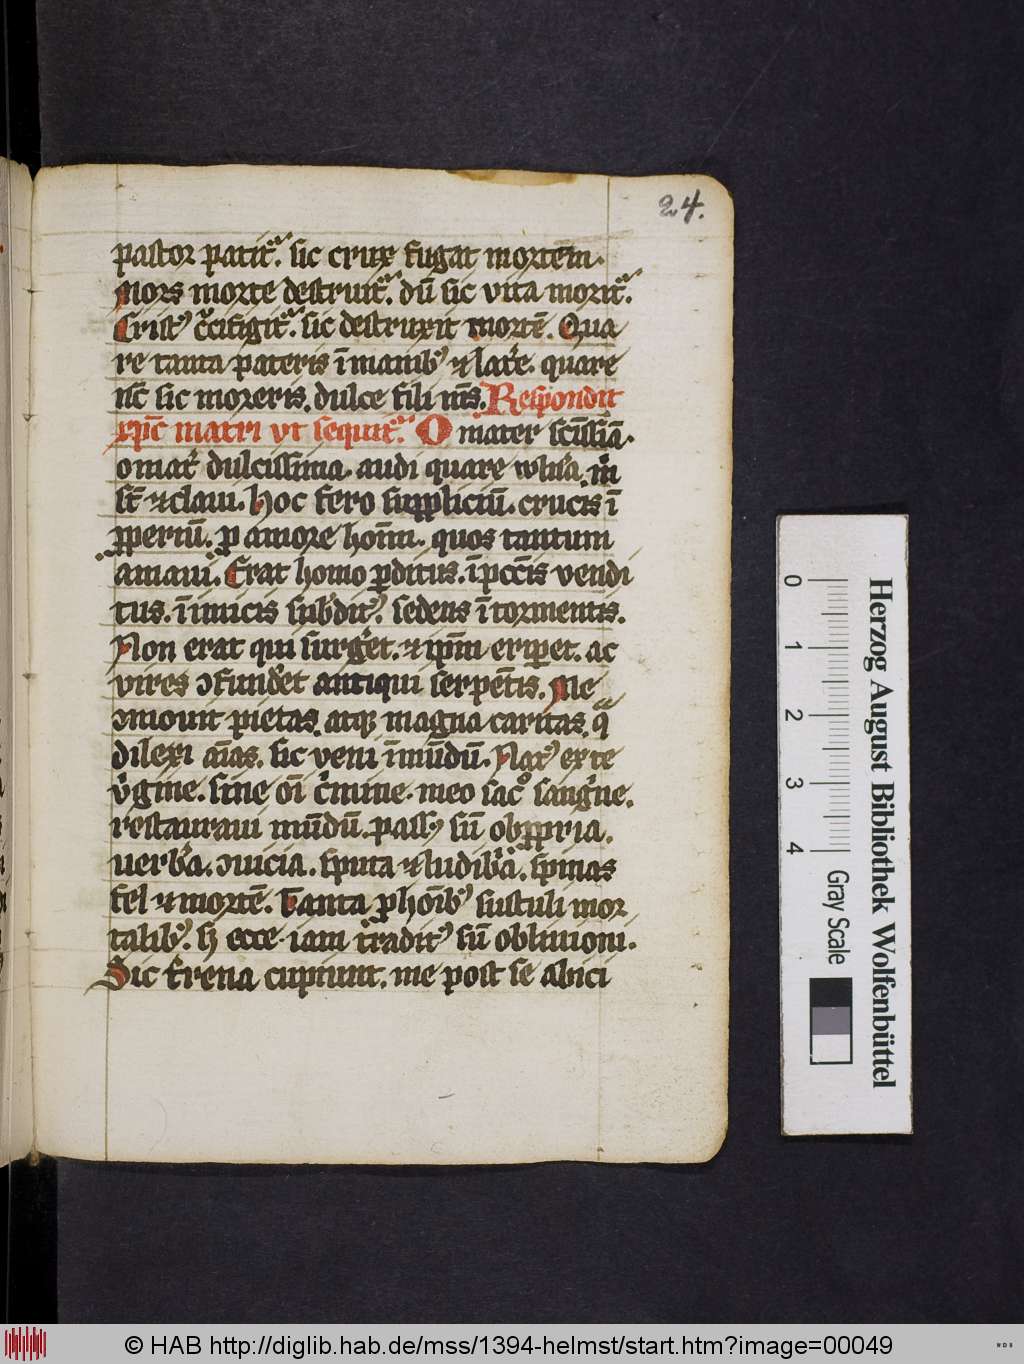 24.
pastor patit᷑. sic crux fugat mortem.
Mors morte destruit᷑. dū sic vita morit᷑.
Crist⁹ c᷑cifigit᷑. sic destruxit mortē. Qua
re tanta pateris ī manib⁹ ⁊ lat̉e. quare
nc̄ sic moreris. dulce fili mi̅s. Respondit
xp̄c matri vt sequit᷑. O mater sc̄issīa.
o mat̉ dulcissima. audi quare wln̉a. m̉
st̄ ⁊ claui. Hoc fero suppliciū. crucis ī
ꝓperiū. ꝓ amore hoīm. quos tantum
amaui. Erat homo ꝑditus. ī pcc̄is vendi
tus. ī imicis subdit⁹. sedens ī tormentis.
Non erat qui surg̉et. ⁊ ip̄m eriꝑet. ac
vires ↄfund̉et antiqui serpētis. Me
ↄmouit pietas. atqꝫ magna caritas. qᷓ
dilexi aīas. sic veni ī mūdū. Nat⁹ ex te
v̉gine. sine oī c̉mine. meo sac̊ sang̉ne.
restauraui mūdū. pass⁹ sū obꝓpria.
uerb̉a. ↄuicia. sputa ⁊ ludib̉a. spinas
fel ⁊ mortē. Tanta ꝓ hoīb⁹ sustuli mor
talib⁹. sꝫ ecce iam tradit⁹ sū obliuioni.
Sic frena cupiunt. me post se abici
0 1 2 3 4
Gray Scale
Herzog August Bibliothek Wolfenbüttel
© HAB http://diglib.hab.de/mss/1394-helmst/start.htm?image=00049